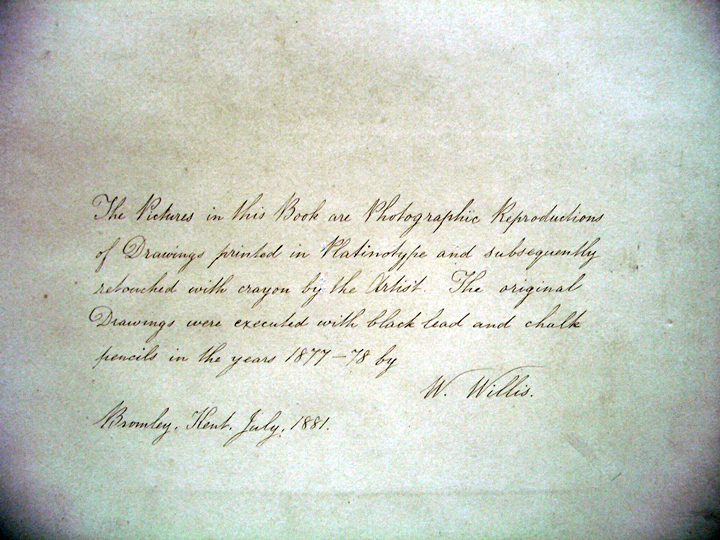 The Pictures in this Book are Photographic Reproductions
of Drawings printed in Platinotype and subsequently
retouched with crayon by the Artist. The original
Drawings were executed with black lead and chalk
pencils in the years 1877–78 by
W. Willis.
Bromley. Kent. July, 1881.